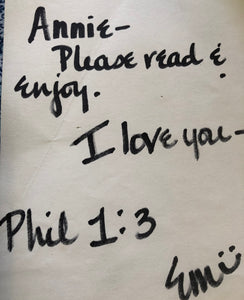 Annie-
Please read &
enjoy.
I love you-
Phil 1:3
Emi